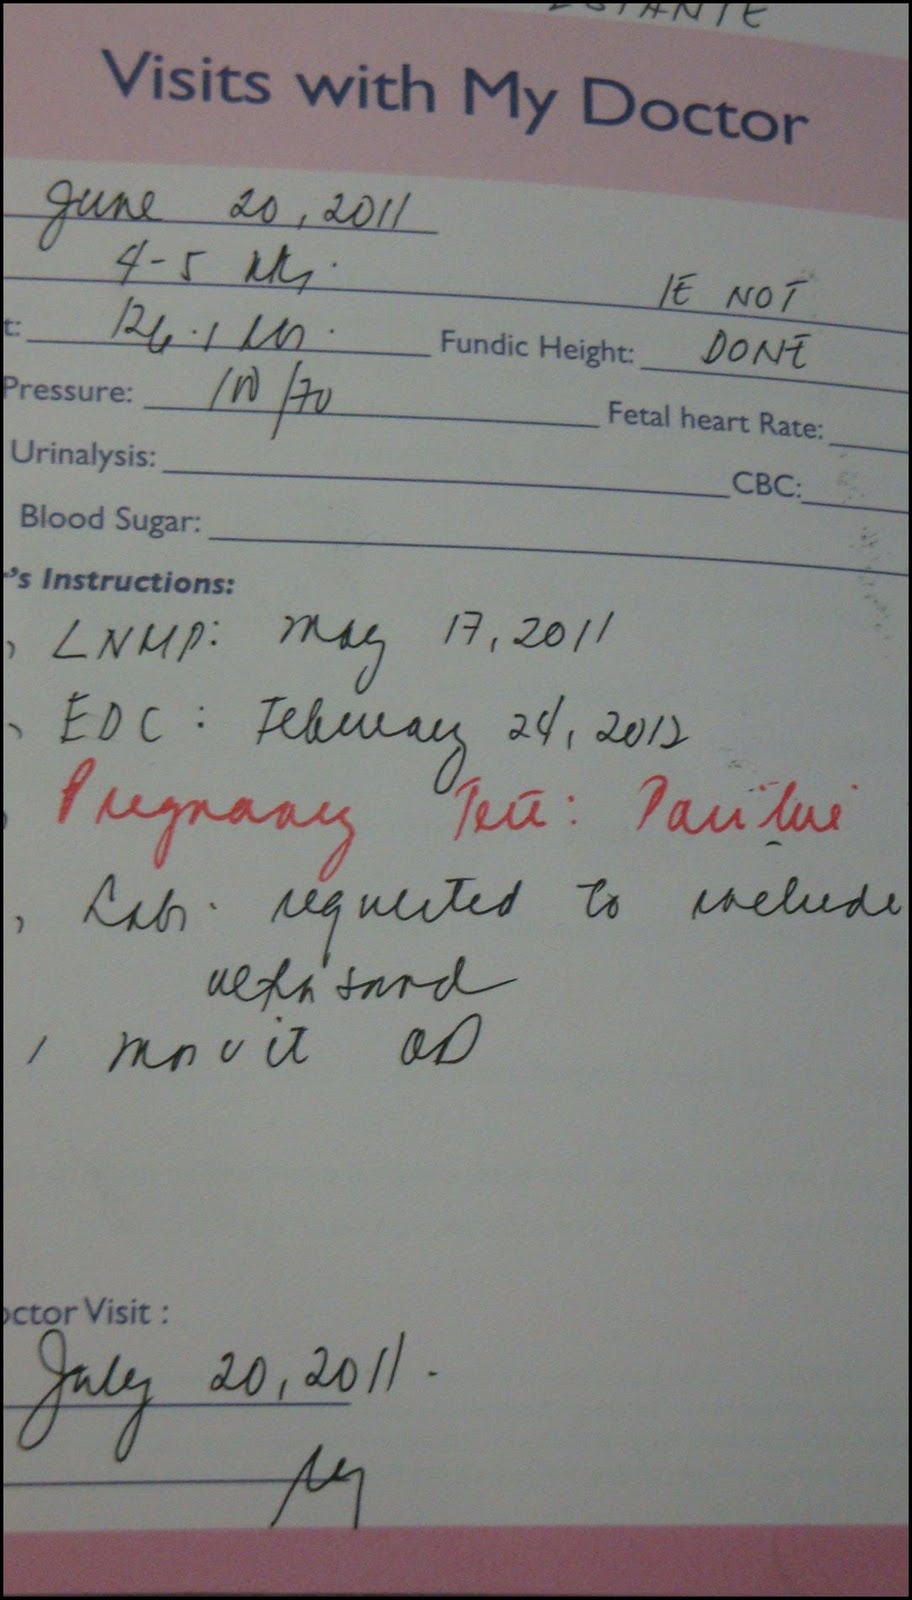 Visits with My Doctor
June 20, 2011
4-5
IE NOT
t: 126.1 Fundic Height: DONE
Pressure: 100/70 Fetal heart Rate:
Urinalysis: CBC:
Blood Sugar:
's Instructions:
LNMP: May 17, 2011
EDC: February 24, 2012
Pregnancy Test: Positive
Labs. requested to include
ultrasound
OD
octor Visit :
July 20, 2011.